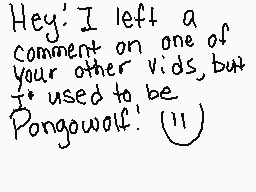 Hey! I left a
comment on one of
your other vids, but
I* used to be
Pongowolf!